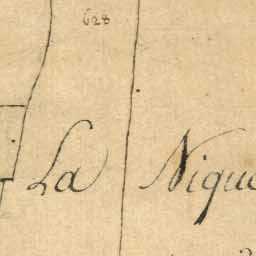 628
La Nique